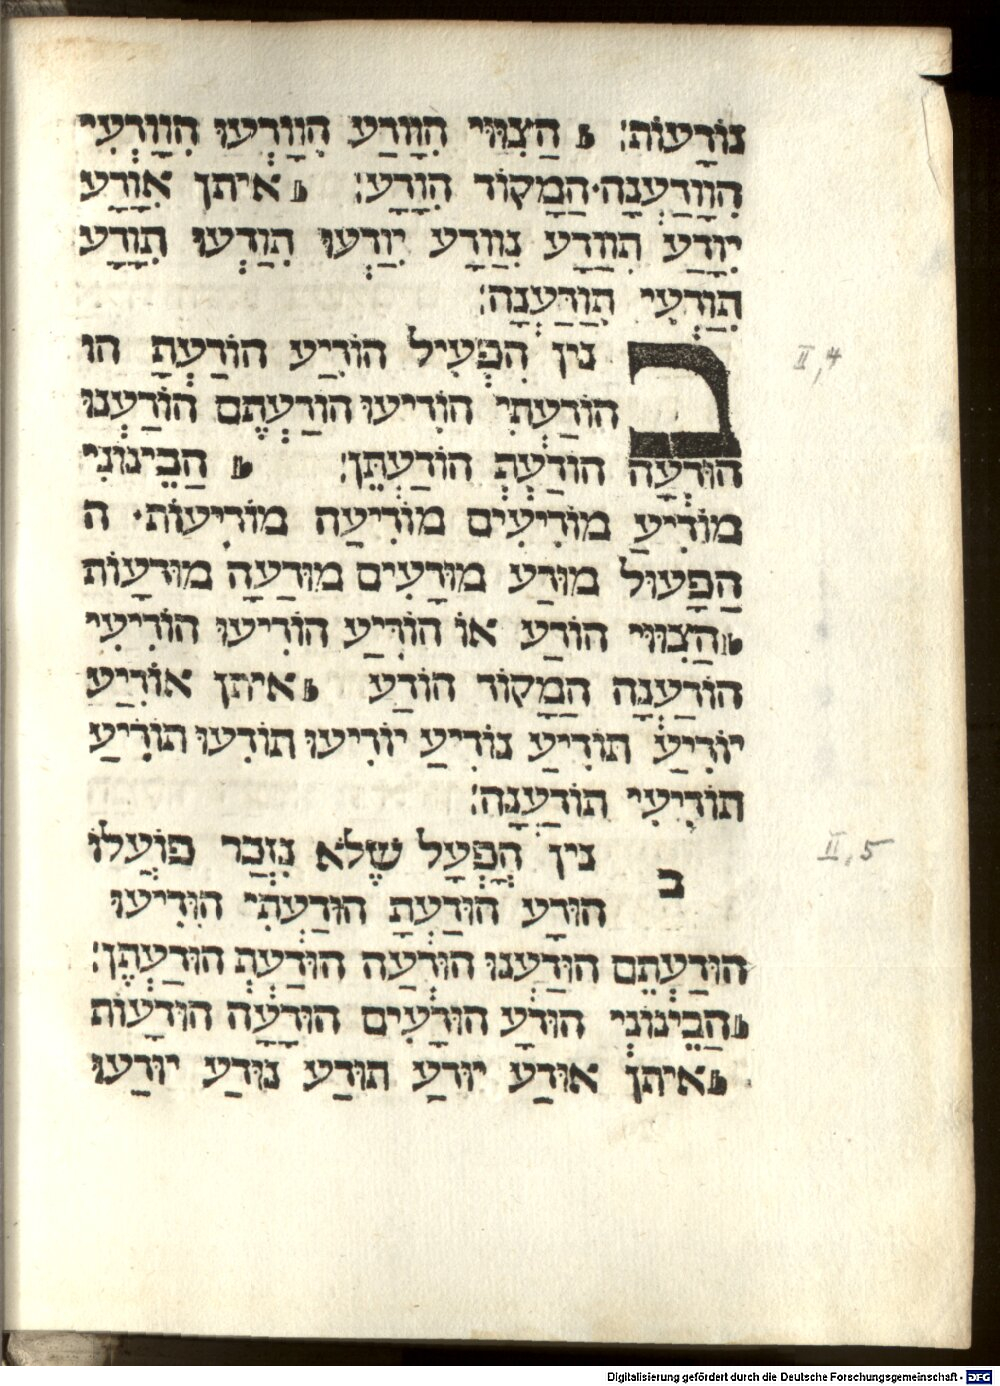 נוֹדָעוֹת׃ הַצִוּוּי הִוָּדַע הִוָּדְעוּ הִוָּדְעִי
הִוָּדַעְנָה הַמָקוֹר הִוָּדַע׃ איתן אִוָּדַע
יִוָּדַע תִוָּדַע נִוָּדַע יִוָּדְעוּ תִוָּדְעוּ תִוָּדַע
תִוָּדְעִי תִוָּדַעְנָה׃
בנין הִפְעִיל הוֹדִיעַ הוֹדַעְתָ הו
הוֹדַעְתִי הוֹדִיעוּ הוֹדַעְתֶם הוֹדַעְנוּ
הוֹדִעָה הוֹדַעְתְ הוֹדַעְתֵן׃ הַבֵינוֹנִי
מוֹדִיעַ מוֹדִיעִים מוֹדִיעַה מוֹדִיעוֹת ה
הַפָעוּל מוּדַע מוּדָעִים מוּדַעָה מוּדָעוֹת
הַצִוּוּי הוֹדַע אוֹ הוֹדִיַע הוֹדִיעוּ הוֹדִיעִי
הוֹדַעְנָה הַמָקוֹר הוֹדַע איתן אוֹדִיַע
יוֹדִיעַ תוֹדִיַע נוֹדִיעַ יוֹדִיעוּ תוֹדִעוּ תוֹדִיַע
תוֹדִיעִי תוֹדַעְנָה׃
בנין הָפְעַל שֶלֹא נִזְכַר פוֹעֲלוֹ
הוּדַע הוּדַעְתָ הוּדַעְתִי הוּדִיעוּ
הוּדַעְתֵם הוּדַעְנוּ הוּדְעַה הוּדַעְתְ הוּדַעְתֶן׃
הַבֵינוֹנִי הוּדָע הוּדָעִים הוּדָעָה הוּדָעוֹת
איתן אוּדַע יוּדַע תוּדַע נוּדַע יוּדַעוּ
II,4
II,5
Digitalisierung gefördert durch die Deutsche Forschungsgemeinschaft - DFG